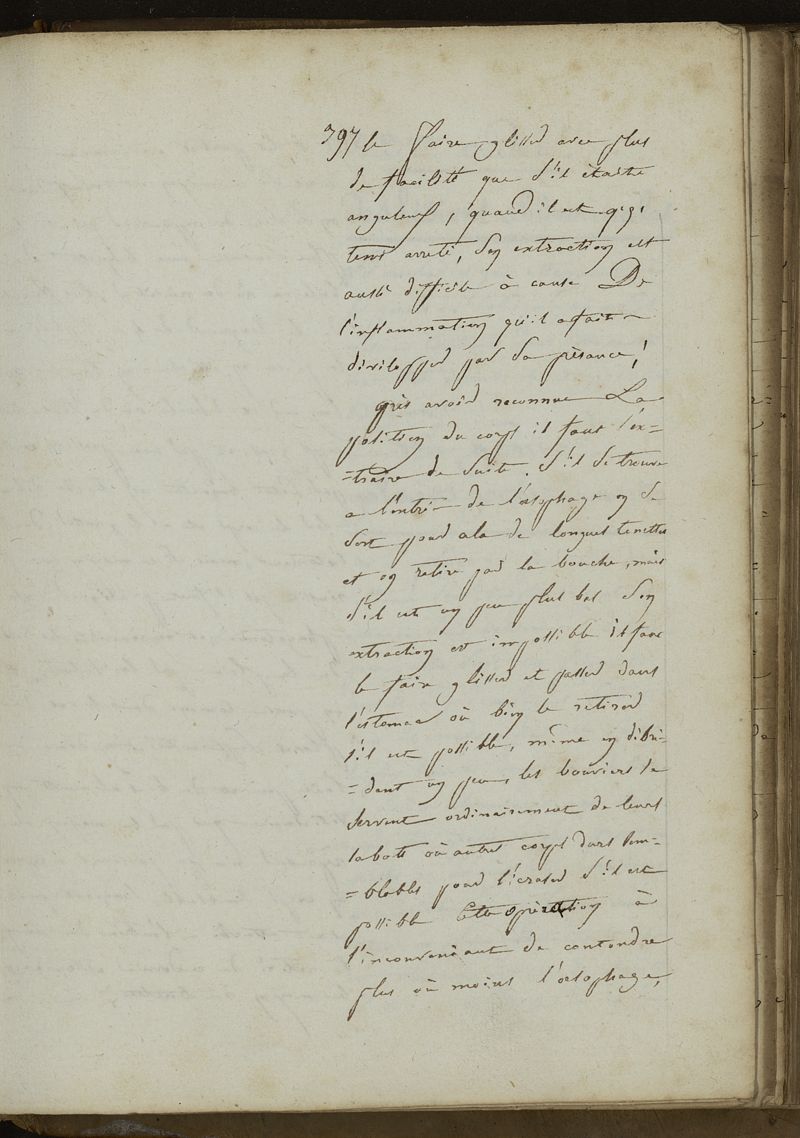 397 le faire glisser avec plus
de facilité que s'il étaite
anguleux, quand il est
tems arreté, son extraction est
aussi difficile à cause De
l'inflammation qu'il a fait
divilopper par sa présance,
après avoir reconnue La
position du corps il faut l'ex=
=traire de suite. S'il se trouve
a l'entré de l'œsophage on se
sert pour cela de longues tenettes
et on retire par la bouche, mais
s'il est un peu plus bas son
extraction est impossible il faut
le faire glisser et passer dans
l'estomac où bien le retirer
s'il est possible, même en débri=
=dant un peu, les bouviers se
servent ordinairement de leurs
sabots où autres corps durs sem=
=blables pour l'écraser s'il est
possible Cette opération à
l'inconveniant de contondre
plus où moins l'œsophage,